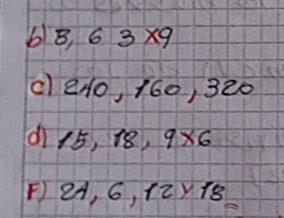 b) 8, 6 3 x9
c) 240, 160, 320
d) 15, 18, 9x6
F) 24, 6, 12 y 18